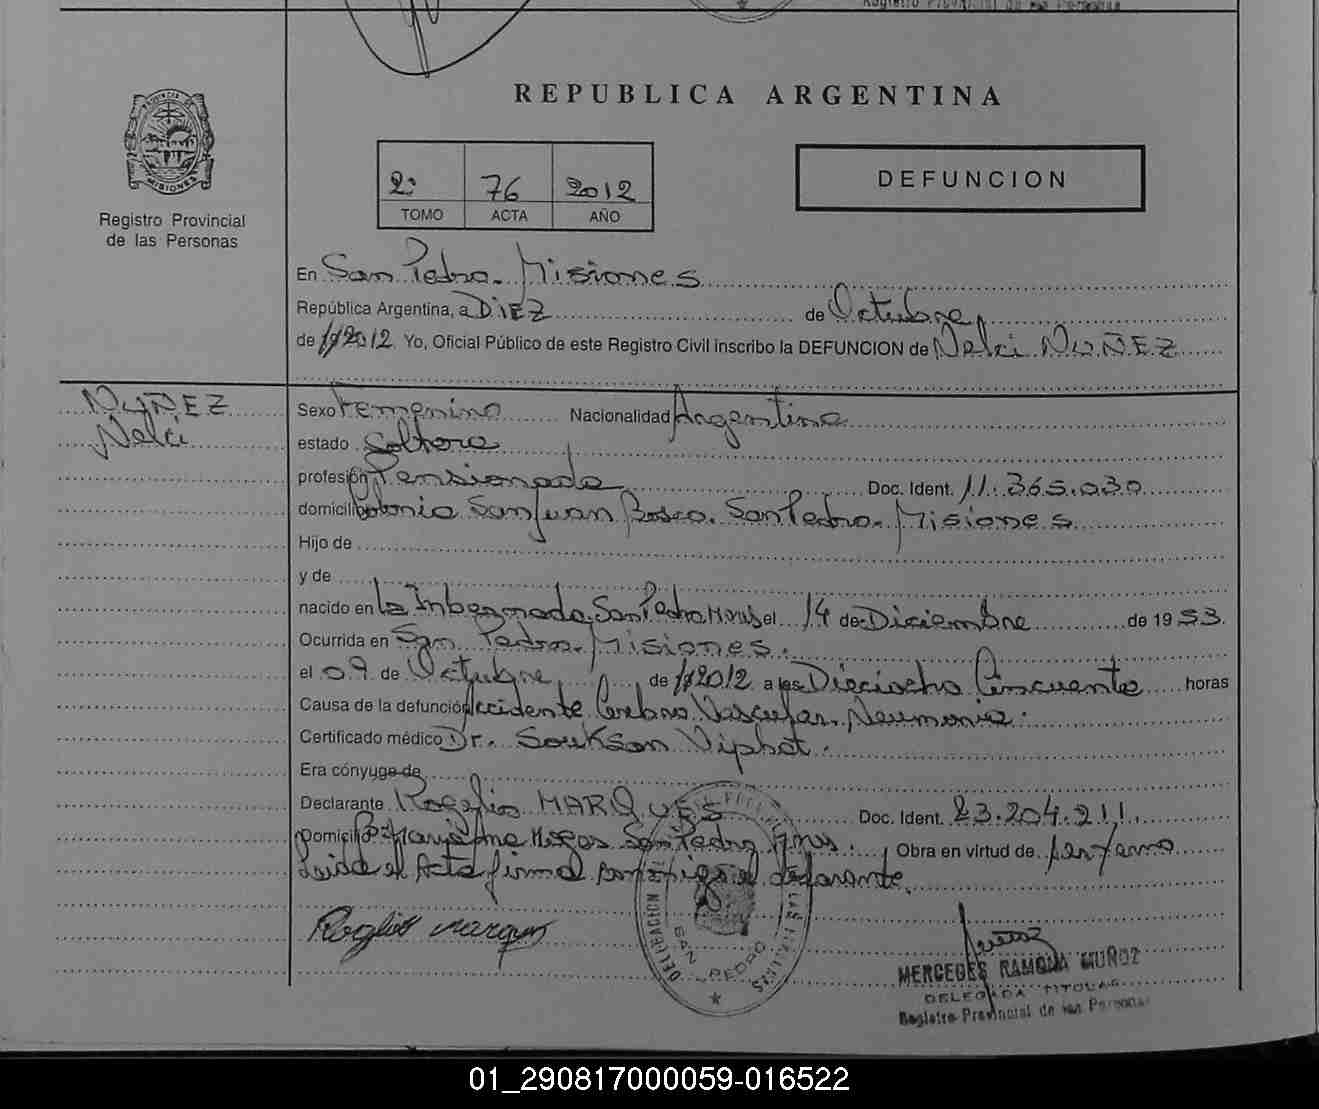 Registro Provincial de las Personas
REPUBLICA ARGENTINA
PROVINCIA DE
MISIONES
Registro Provincial
de las Personas
2º 76 2012
TOMO ACTA AÑO
DEFUNCION
En San Pedro. Misiones
República Argentina, a DiEZ de Octubre
de 2012 Yo, Oficial Público de este Registro Civil inscribo la DEFUNCION de Nelci NUÑEZ
NUÑEZ
Nelci
Sexo Femenino Nacionalidad Argentina
estado Soltera
profesión Pensionada Doc. Ident. 11.365.030
domicilio Colonia San Juan Bosco. San Pedro. Misiones
Hijo de
y de
nacido en La Inbernada San Pedro Mnes el 14 de Diciembre de 1953.
Ocurrida en San Pedro. Misiones.
el 09 de Octubre de 2012 a las Dieciocho Cincuenta horas
Causa de la defunción Accidente Cerebro Vascular. Neumonia.
Certificado médico Dr. Soukson Viphot.
Era cónyuge de
Declarante Rogelio MARQUES Doc. Ident. 23.204.211.
Domicilio San Pedro Mnes. Obra en virtud de
Leida el Acta firma conmigo el declarante.
Roglio marques
DELEGACION
SAN PEDRO
MERCEDES RAMONA MUÑOZ
DELEGADA TITULAR
Registro Provincial de las Personas
01_290817000059-016522